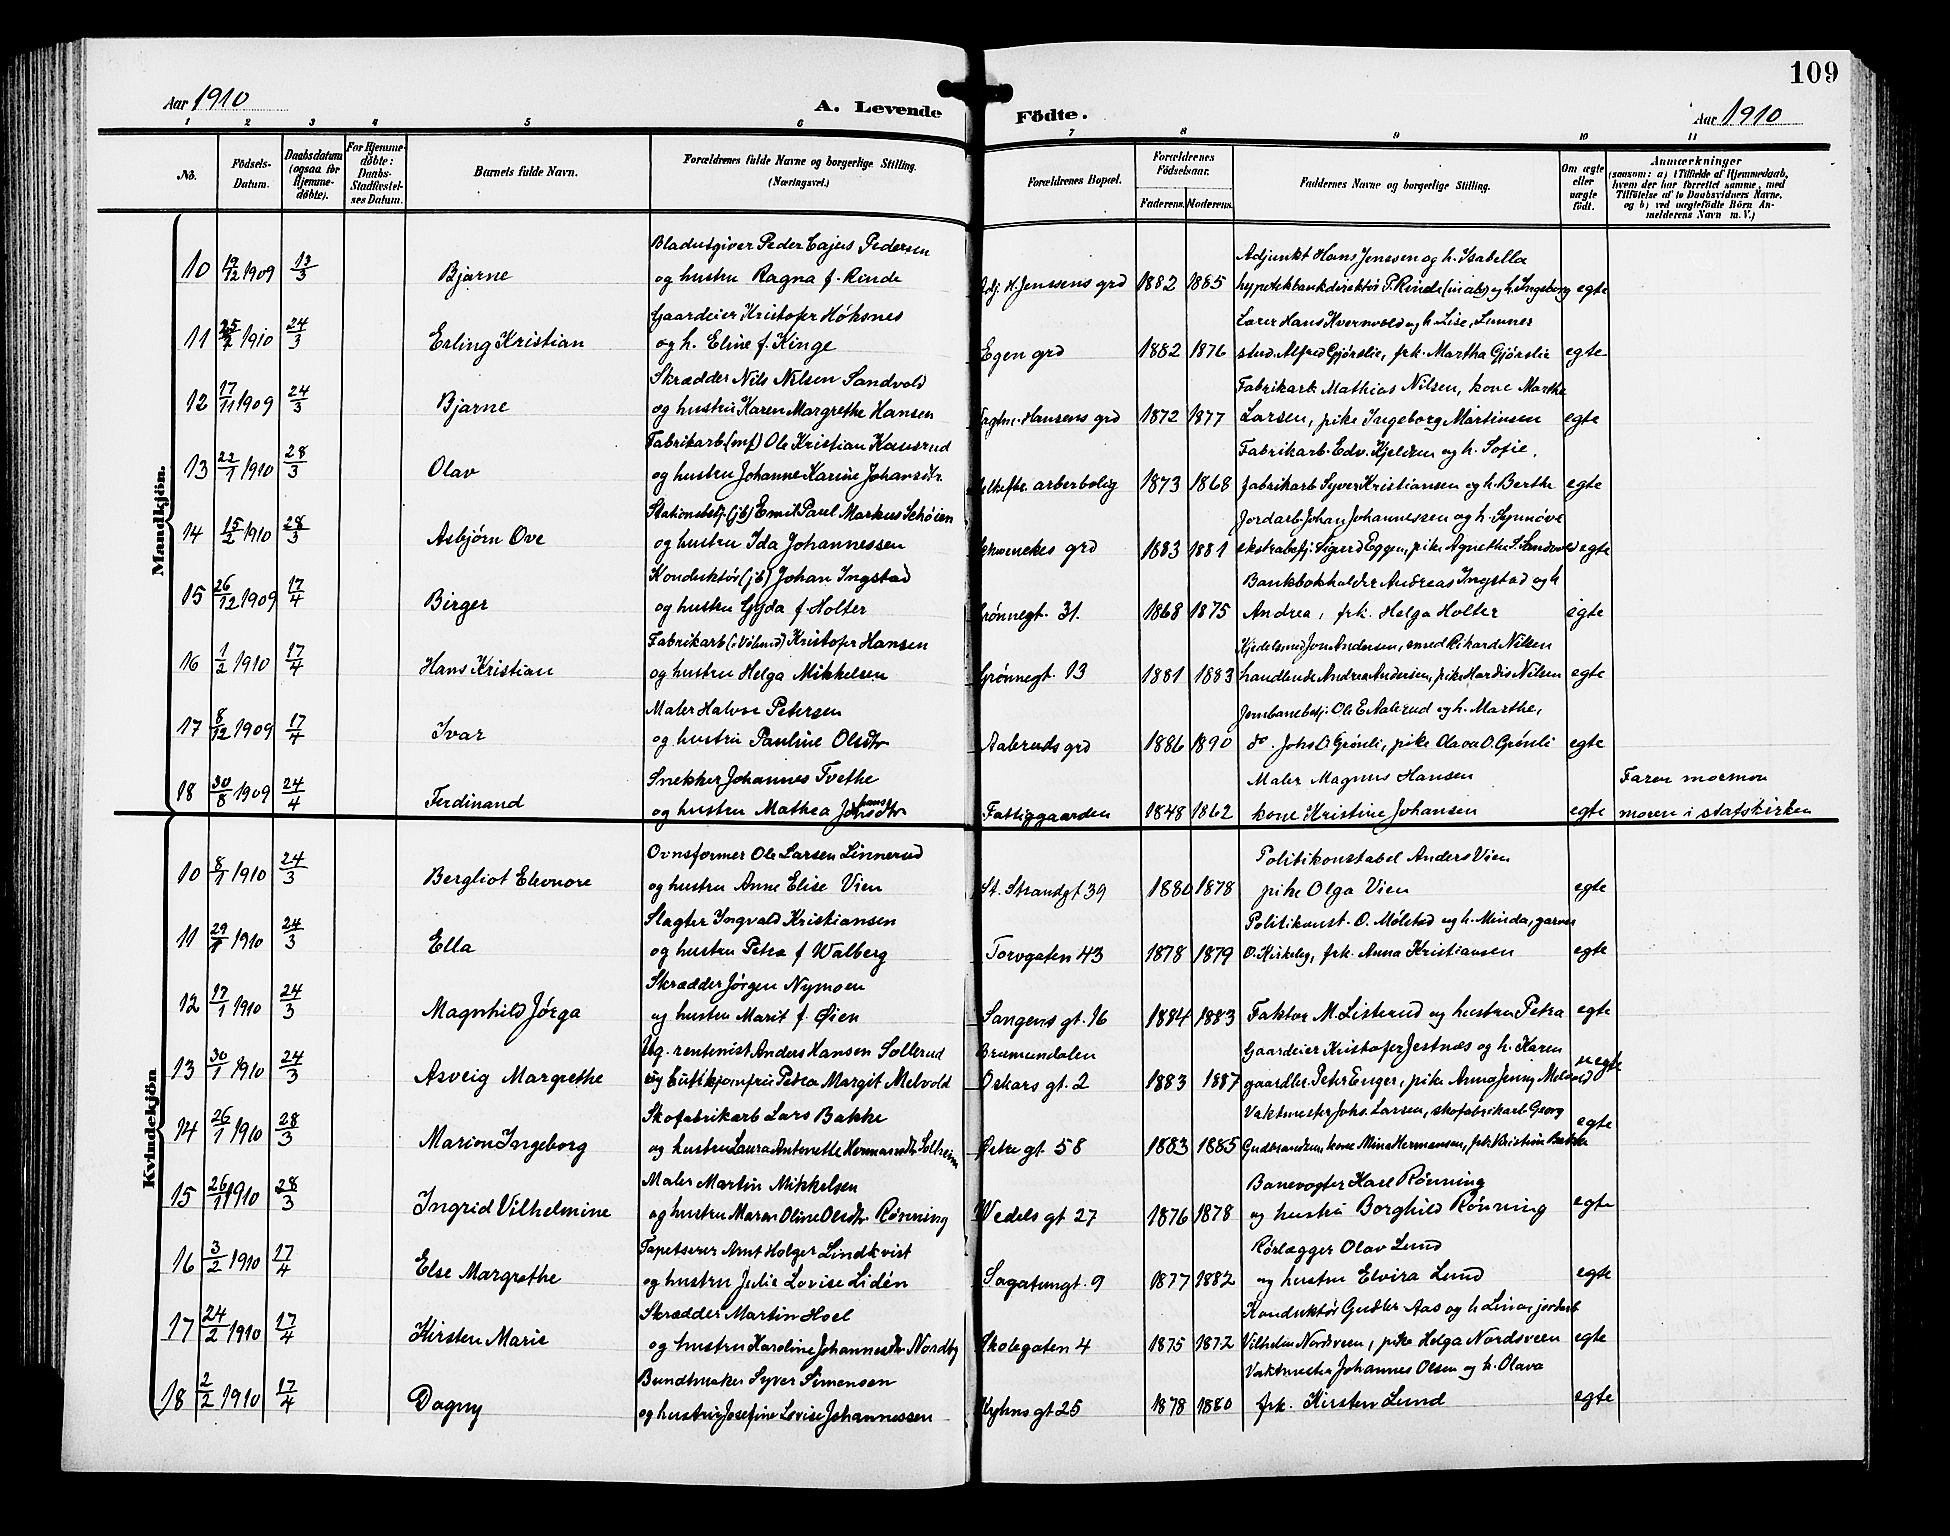 109
Aar 1910
A. Levende
Födte.
Aar 1910
1 2 3 4 5 6 7 8 9 10 11
No.
Födsels-
Datum.
Daabsdatum
(ogsaa for
Hjemme-
döbte).
For Hjemme-
döbte:
Daabs-
Stadfæstel-
ses Datum.
Barnets fulde Navn.
Forældrenes fulde Navne og borgerlige Stilling.
(Næringsvei.)
Forældrenes Bopæl.
Forældrenes
Födselsaar.
Faderens. Moderens.
Faddernes Navne og borgerlige Stilling.
Om ægte
eller
uægte
födt.
Anmærkninger
(saasom: a) i Tilfælde af Hjemmedaab,
hvem der har forrettet samme, med
Tilföielse af to Daabsvidners Navne,
og b) ved uægtefödte Börn An-
melderens Navn m. V.)
Mandkjön.
Bladutgiver Peder Cajus Pedersen Adjunkt Hans Jenssen og h. Isabella
10 19/12 1909 13/3 Bjarne og hustru Ragna f. Rinde Adj. H. Jenssens grd 1882 1885 hypotekbankdirektör P. Rinde og h. Ingeborg egte
Gaardeier Kristofer Høksnes Lærer Hans Kvernvold og h. Lise, Lunner
11 1910 24/3 Erling Kristian og h. Eline f. Kinge Egen grd 1882 1876 stud. Alfred Gjörslie, frk. Martha Gjörslie egte
Skrædder Nils Nilsen Sandvold Fabrikarb. Mathias Nilsen, kone Marthe
12 17/11 1909 24/3 Bjarne og hustru Karen Margrethe Hansen Hansens grd 1872 1877 Larsen, pike Ingeborg Martinsen egte
Fabrikarb. (mf) Ole Kristian Fabrikarb. Edv. Kjeldsen og h. Sofie,
13 22/1 1910 28/3 Olav og hustru Johanne Karine Johansdtr. arberbolig 1873 1868 fabrikarb Syver Kristiansen og h. Berthe egte
Stationsbetj. (jb) Emil Paul Markus Schöien Jordarb. Johan Johannessen og h. Synnöve
14 15/2 1910 28/3 Asbjörn Ove og hustru Ida Johannessen grd 1883 1881 ekstrabetj. Sigurd Eggen, pike Agnethe S. Sandvold egte
Konduktör (jb) Johan Ingstad Bankbokholder Andreas Ingstad og h
15 26/12 1909 17/4 Birger og hustru Gyda f. Holter Grönnegt. 31. 1868 1875 Andrea, frk. Helga Holter egte
Fabrikarb. Kristofer Hansen Kjedelsmed Jon Andersen, smed Rikard Nilsen
16 1/2 1910 17/4 Hans Kristian og hustru Helga Mikkelsen Grönnegt. 13 1881 1883 handlende Andrea Andersen, pike Hardis Nilsen egte
Maler Halvor Petersen Jernbanebetj. Ole E. Aalerud og h. Marthe,
17 8/12 1909 17/4 Ivar og hustru Pauline Olsdtr Aaleruds grd 1886 1890 do. Johs O. Grönli, pike Olava O. Grönli egte
Snekker Johannes Tvethe Maler Magnus Hansen Faren mormon
18 30/8 1909 24/4 Ferdinand og hustru Mathea Fattiggaarden 1848 1862 kone Kristine Johansen egte moren i statskirken
Kvindekjön
Ovnsformer Ole Larsen Linnerud Politikonstabel Anders Vien
10 8/1 1910 24/3 Bergliot Eleonore og hustru Anne Elise Vien St. Strandgt 39 1880 1878 pike Olga Vien egte
Slagter Ingvald Kristiansen Politikonst. O. Mølstad og h. Minda, garver
11 29/1 1910 24/3 Ella og hustru Petra f. Walberg Torvgaten 43 1878 1879 O. Kirkeby, frk. Anna Kristiansen egte
Skrædder Jörgen Nymoen
12 17/1 1910 24/3 Magnhild Jörga og hustru Marit f. Øien Vangens gt. 16 1884 1883 Faktor M. Listerud og hustru Petra egte
Ug. rentenist Anders Hansen Sollerud Brumundalen Gaardeier Kristofer Jestnæs og h. Karen
13 30/1 1910 24/3 Asveig Margrethe og Butikjomfru Petra Margit Melvold Oskars gt. 2 1883 1887 gaardbr. Peter Enger, pike Anna Jenny Melvold uegte
Skofabrikarb Lars Bakke Vaktmester Johs. Larsen, skofabrikarb Georg
14 26/1 1910 28/3 Marion Ingeborg og hustru Laura Antonette Hermansdtr Solheim Østre gt. 58 1883 1885 Gudbrandsen, kone Mina Hermansen, frk. Kristine Bakke egte
Maler Martin Mikkelsen Banevogter Karl Rönning
15 26/1 1910 28/3 Ingrid Vilhelmine og hustru Maren Oline Olsdtr. Rönning Wedels gt 27 1876 1878 og hustru Borghild Rönning egte
Tapetserer Arnt Holger Lindkvist Rörlægger Olav Lund
16 3/2 1910 17/4 Else Margrethe og hustru Julie Lovise Lidén Sagatungt. 9 1877 1882 og hustru Elvira Lund egte
Skrædder Martin Hoel Konduktör Gudbr. Aas og h. Lina, jordarb
17 24/2 1910 17/4 Kirsten Marie og hustru Karoline Johannesdtr. Nordby Skolegaten 4 1875 1872 Vilhelm Nordsveen, pike Helga Nordsveen egte
Bundtmaker Syver Simensen Vaktmester Johannes Olsen og h. Olava
18 2/2 1910 17/4 Dagny og hustru Josefine Lovise Johannessen gt 25 1878 1880 frk. Kirsten Lund egte